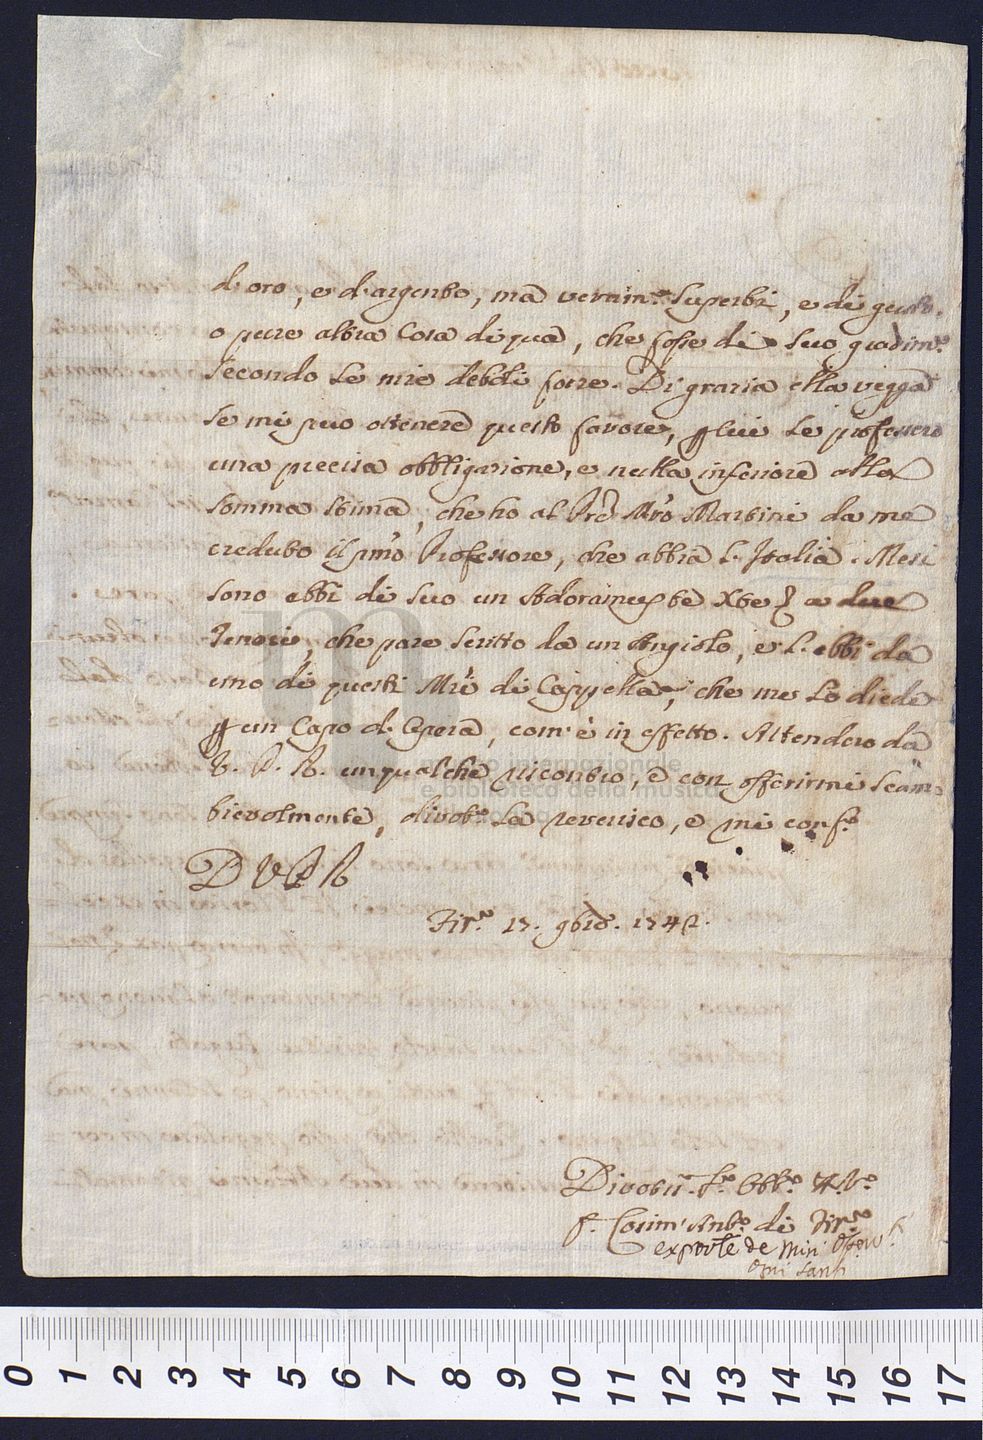 d'oro, e d'argento, mà veram.e superbi, e di gusto.
o pure altra Cosa di quà, che fosse di suo gradim.o
secondo le mie deboli forze. Di grazia ella vegga
se mi puo ottenere questo favore, p lui le professerò
una precisa obbligazione, e nulla inferiore alla
somma stima, che ho al Pre Mro Martini da me
creduto il pmo Professore, che abbia l'Italia. Mesi
sono ebbi di suo un Adoramus te Xte a due
Tenori, che pare scritto da un Angiolo, e l'ebbi da
uno di questi Mri di Cappella, che me lo diede
p un Capo d'Opera, com'è in effetto. Attendero da
V. P. R. un qualche riscontro, e con offerirmi scam=
bievolmente, divot.e la reverisco, e mi conf.o
D V P R
Fir.e 17. 9bre. 1742.
Divotis. Obb.o
f. Cosim' Ant.o di Fir.e
Min' Osserv.ti
Ogni Santi
museo internazionale
e biblioteca della musica
di bologna
0 1 2 3 4 5 6 7 8 9 10 11 12 13 14 15 16 17